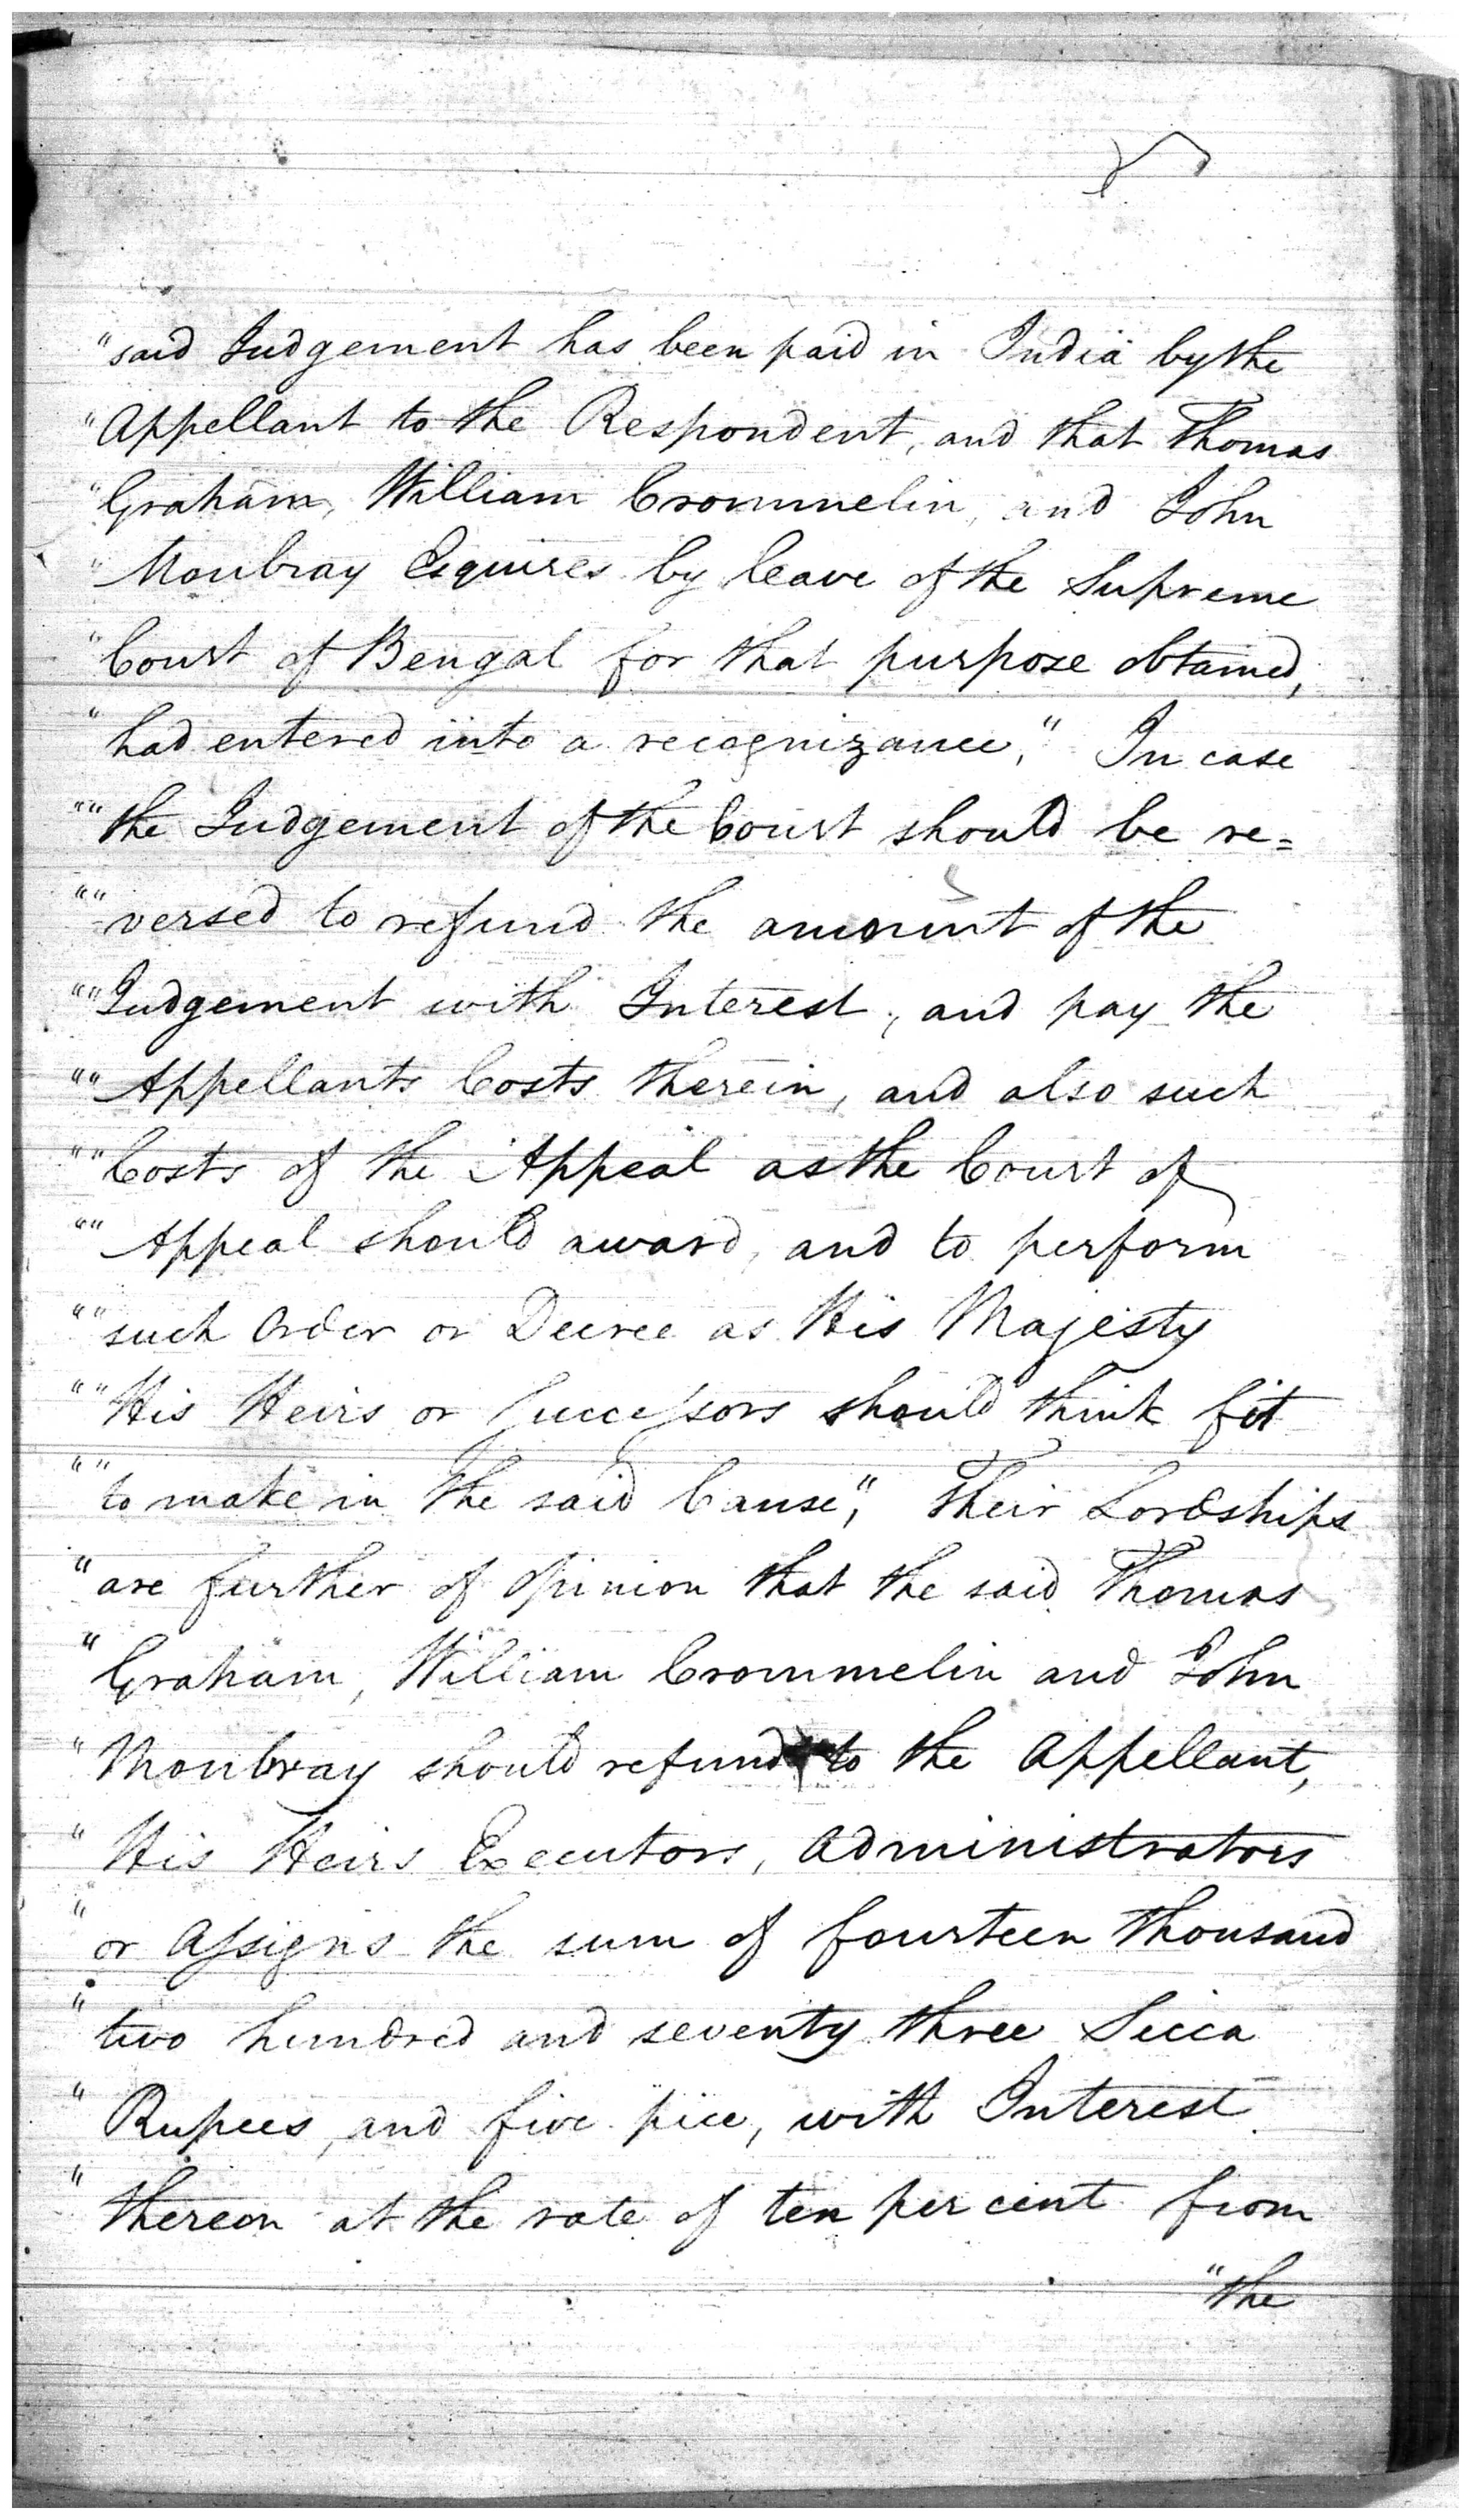 "said Judgement has been paid in India by the
"Appellant to the Respondent, and that Thomas
"Graham, William Crommelin, and John
"Moubray Esquires by leave of the Supreme
"Court of Bengal for that purpose obtained,
"had entered into a recognizance," In case
""the Judgement of the Court should be re=
""versed to refund the amount of the
""Judgement with Interest, and pay the
""Appellants Costs therein, and also such
""Costs of the Appeal as the Court of
""Appeal should award, and to perform
""such Order or Decree as His Majesty
""His Heirs or Successors should think fit
""to make in the said Cause", Their Lordships
"are further of Opinion that the said Thomas
"Graham, William Crommelin and John
"Moubray should refund to the Appellant,
"His Heirs Executors, Administrators
"or Assigns the sum of fourteen thousand
"two hundred and seventy three Sicca
"Rupees, and five pice, with Interest
"thereon at the rate of ten per cent from
"the